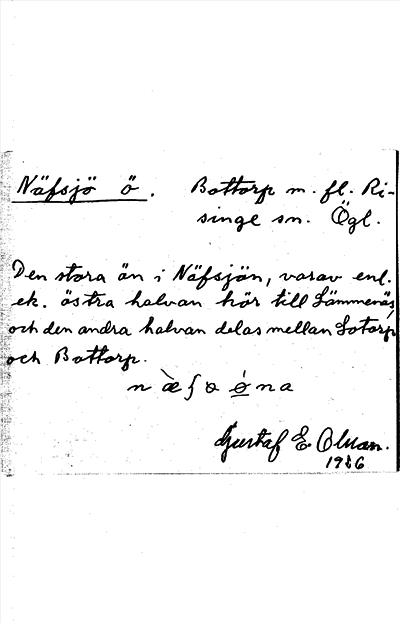 Näfsjö ö. Bottorp m. fl. Ri-
singe sn. Ögl.
Den stora ön i Näfsjön, varav enl.
ek. östra halvan hör till Lämmenäs,
och den andra halvan delas mellan Lotorp
och Bottorp.
Gustaf E Olsson.
1936